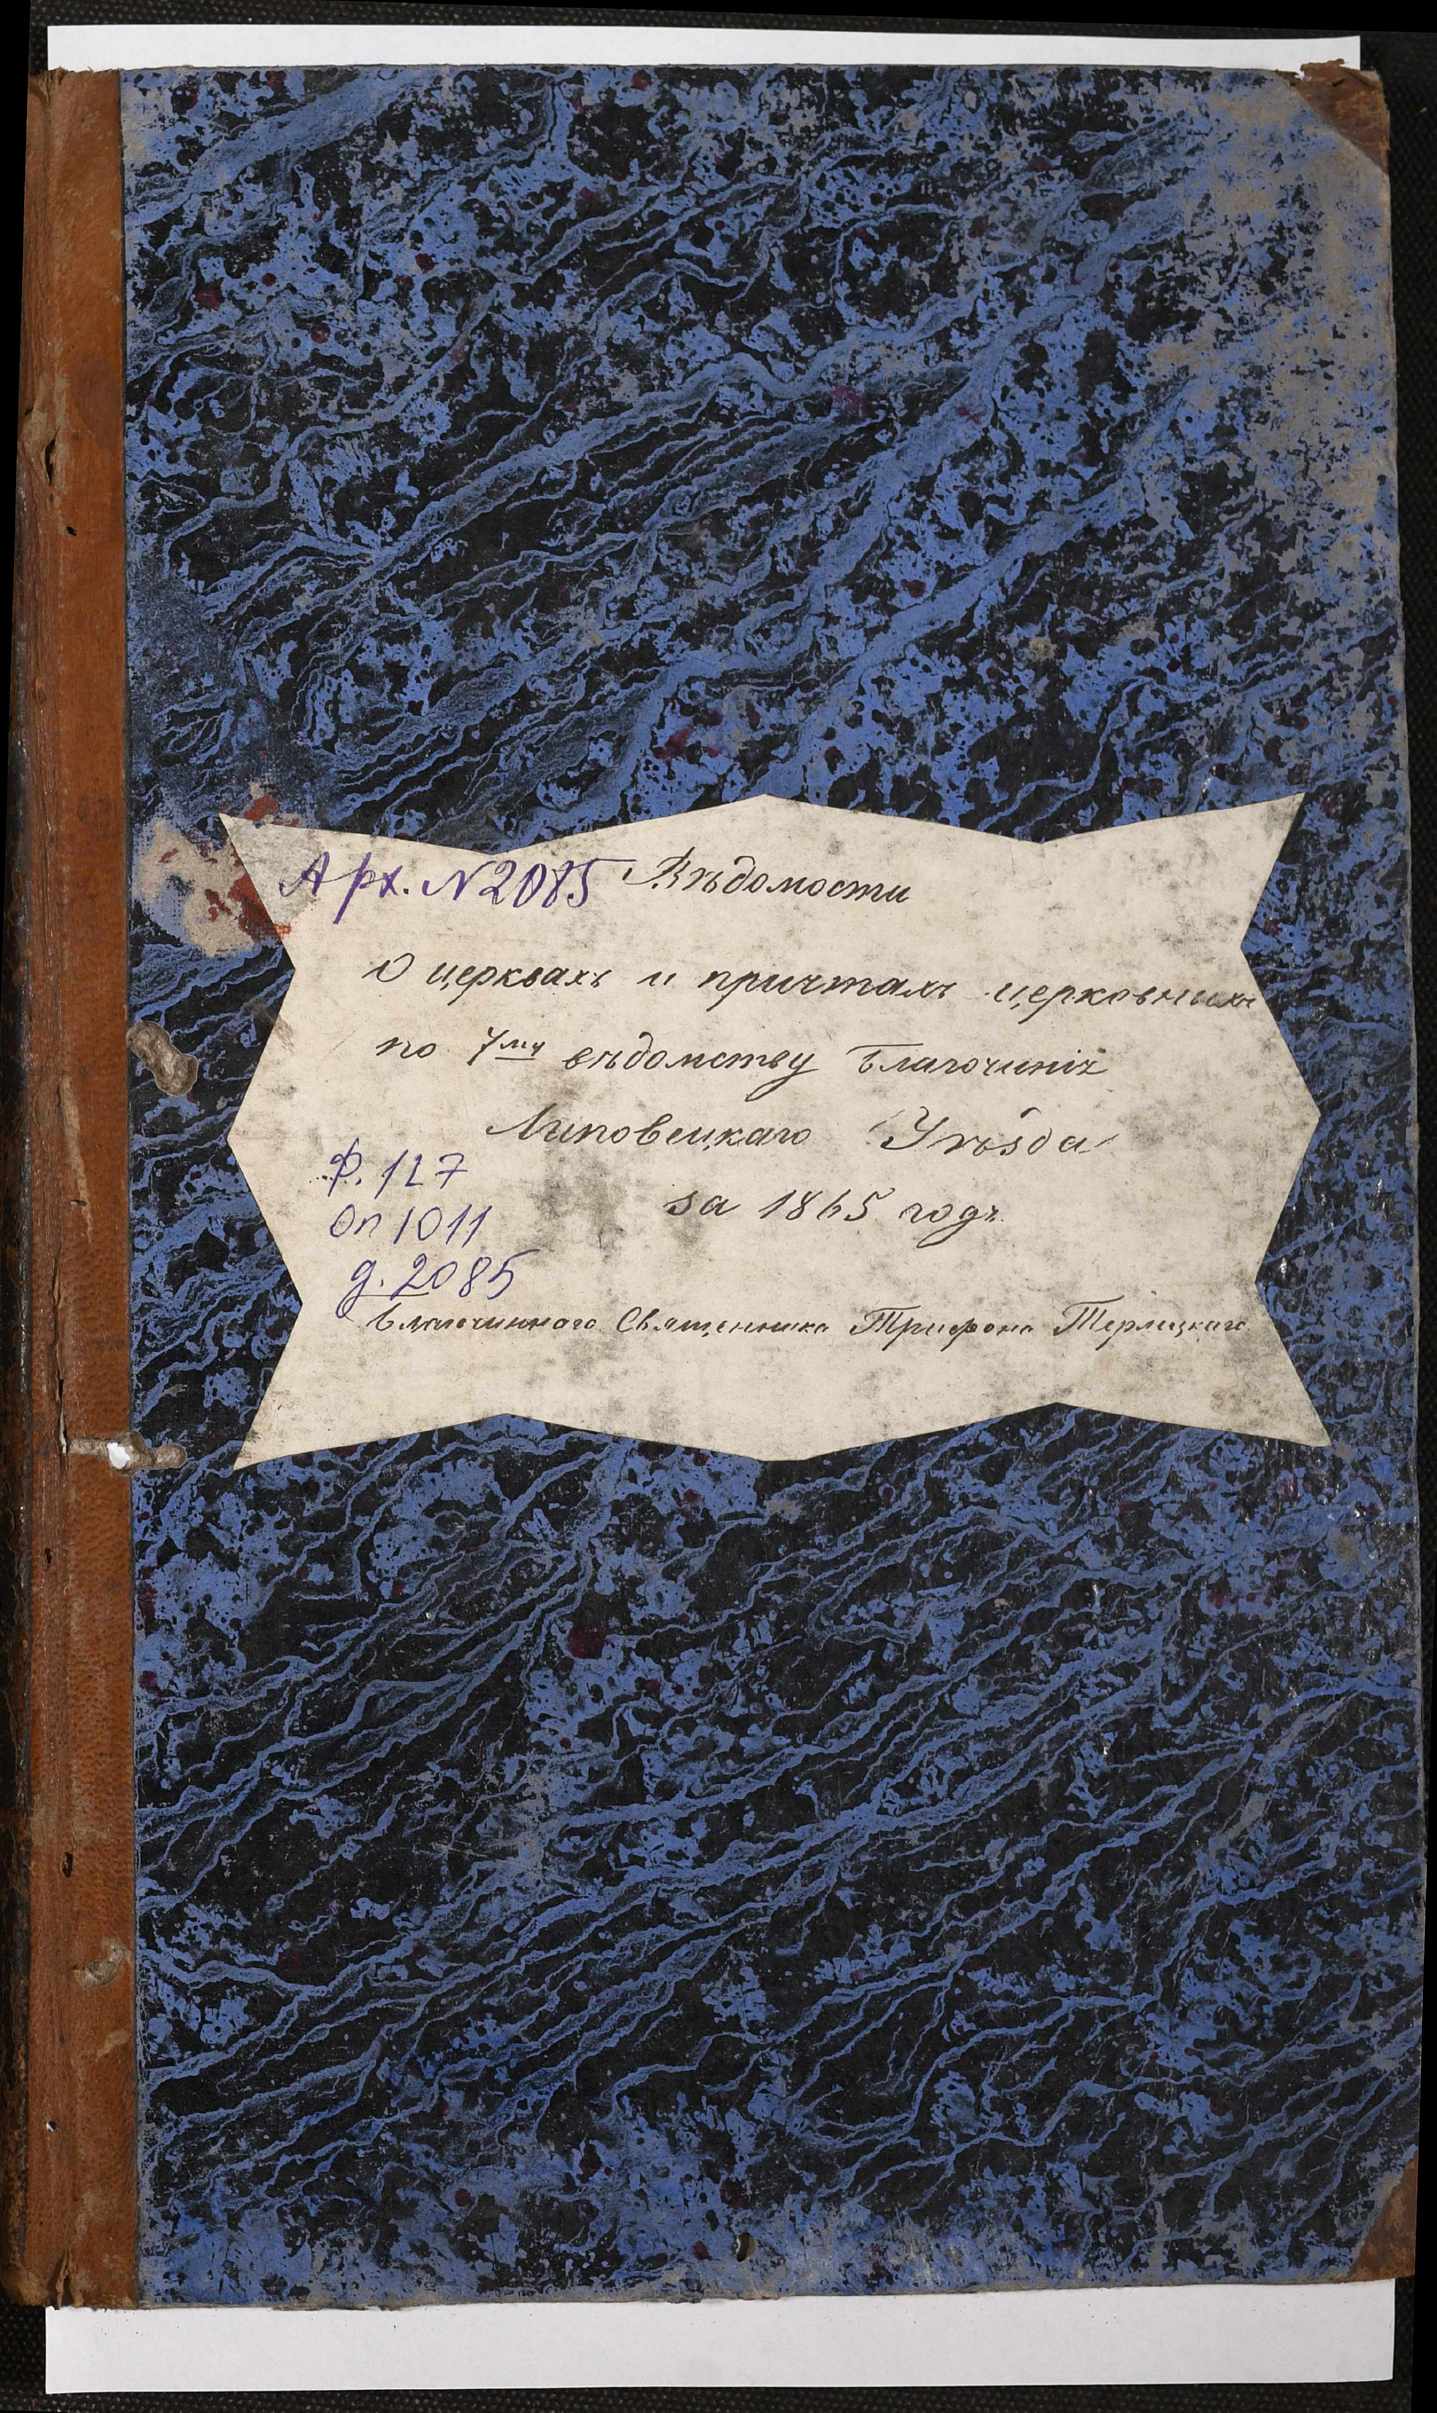 Арх. N 2085 Вѣдомости
О церквахъ и причтахъ церковныхъ
по 7му вѣдомству Благочинія
Липовецкаго Уѣзда
Ф. 127
за 1865 годъ
Оп 1011
д. 2085
Благочиннаго Священника Трифона Терлецкаго